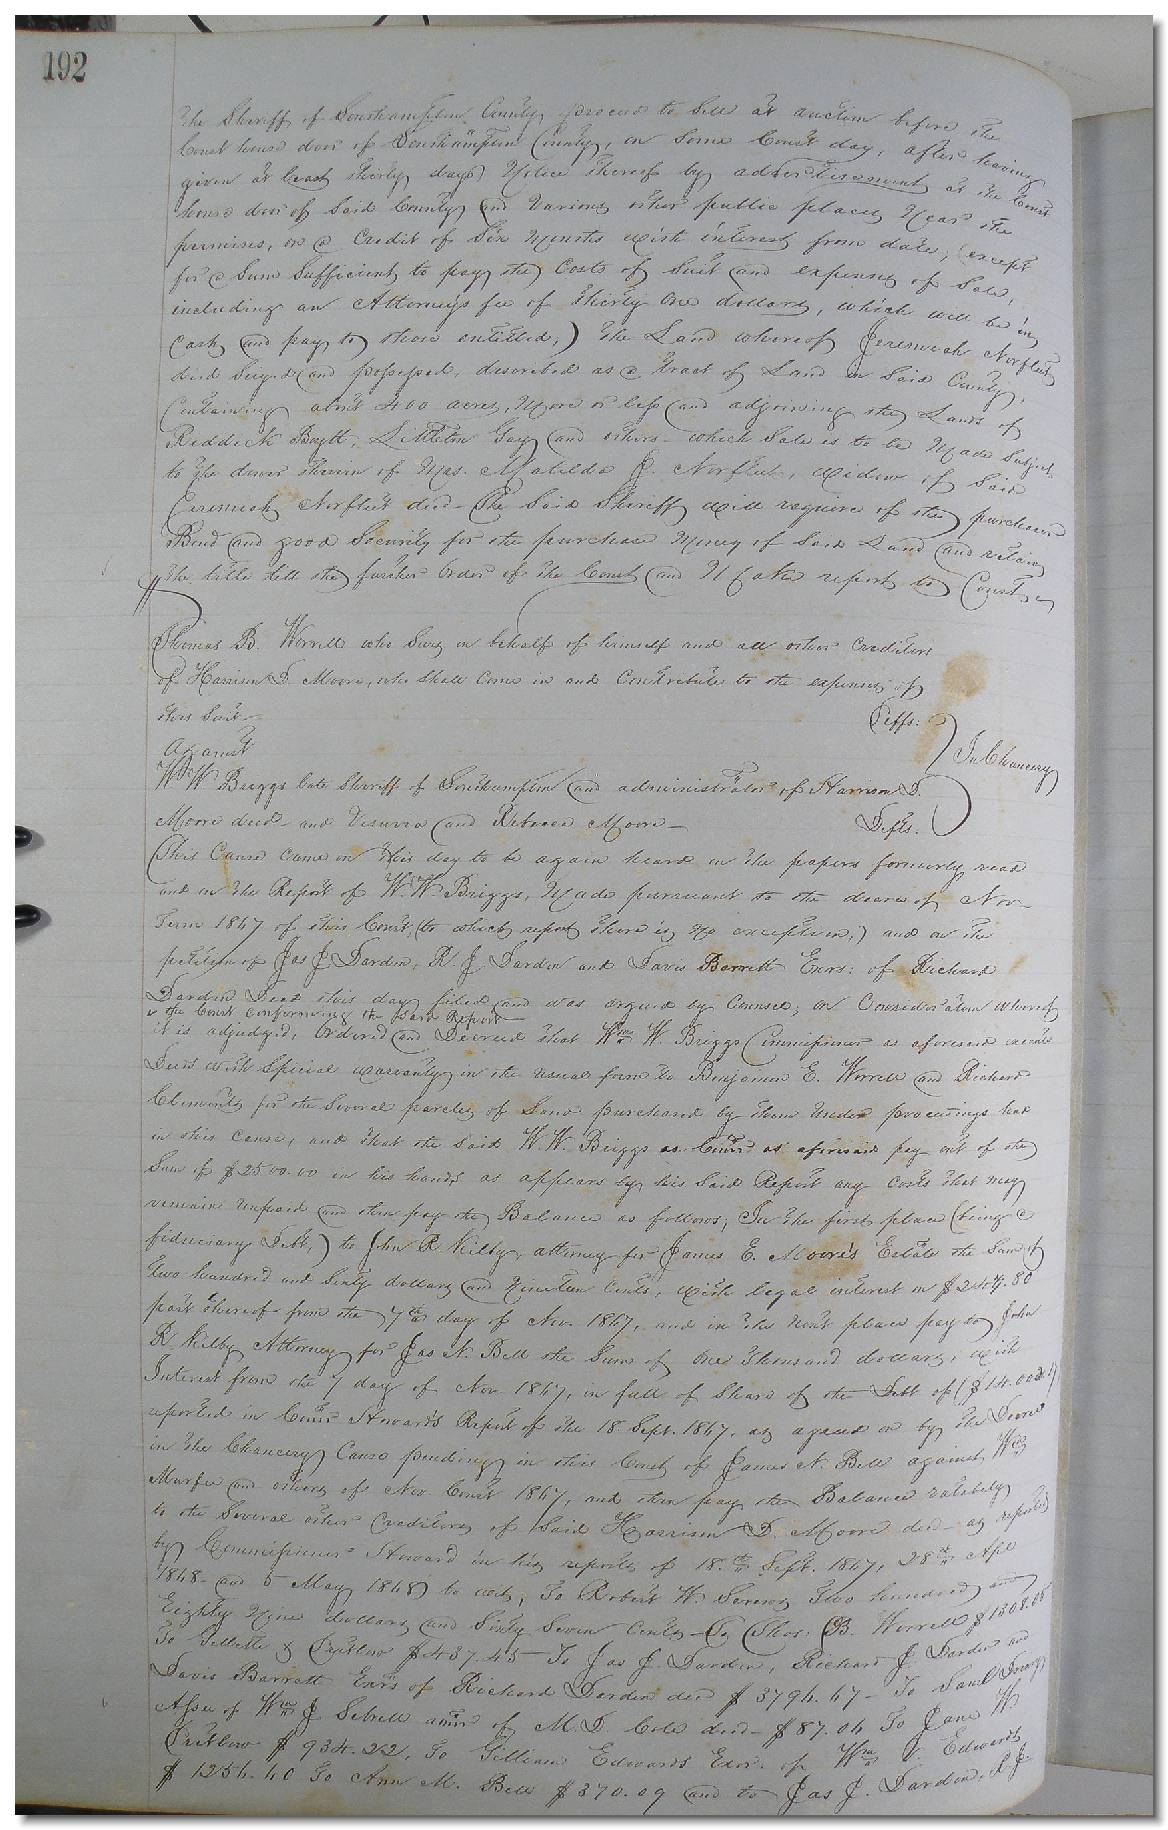 192
The Sheriff of Southampton County proceed to Sell at auction before the
Court house door of Southampton County, on Some Court day, after having
given at least thirty days Notice thereof by advertisement at the Court
house door of Said County and Various other public places Near the
premises, on a Credit of Six Months with interest from date, (except
for a Sum Sufficient to pay the Costs of Suit and expenses of Sale,
including an Attorneys fee of thirty One dollars, which will be in
Cash and pay to those entitled,) The Land whereof Jeremiah Norfleet
died Seized and possessed, described as a tract of Land in Said County,
Containing about 400 acres, More or less and adjoining the Lands of
Reddick Britt, Littleton Gay and others - which Sale is to be Made Subject
to the dower therein of Mrs. Matilda J. Norfleet, widow of Said
Jeremiah Norfleet decd - The Said Sheriff will require of the purchaser
Bond and good Security for the purchase Money of Said Land and retain
the title till the further Order of the Court and Make report to Court
Thomas B. Worrell who Sues on behalf of himself and all other Creditors
of Harrison D. Moore, who Shall Come in and Contribute to the expenses of
this Suit - Plffs.
Against In Chancery
W. W. Briggs late Sheriff of Southampton and administrator of Harrison D.
Moore decd - and and Rebecca Moore - Defts.
This Cause Came on this day to be again heard on the papers formerly read
and on the Report of W. W. Briggs, Made pursuant to the decree of Nov.
Term 1847 of this Court, (to which report there is no exception,) and on the
petition of Jas J. Darden, R. J. Darden and Davis Barrett Exrs: of Richard
Darden Decd this day filed and was argued by Counsel, on Consideration whereof
the Court Confirming the Said Report
it is adjudged, Ordered and Decreed that Wm W. Briggs Commissioner as aforesaid execute
Deeds with Special warranty in the usual form to Benjamin E. Worrell and Richard
Clements for the Several parcels of Land purchased by them Under proceedings had
in this Cause, and that the Said W. W. Briggs as Comr as aforesaid pay out of the
Sum of $2500.00 in his hands as appears by his Said Report any Costs that may
remain Unpaid and then pay the Balance as follows, In the first place (being a
fiduciary Debt,) to John R Kilby, attorney for James E. Moore's Estate the Sum of
two hundred and Sixty dollars and Nineteen Cents, with legal interest on
part thereof from the 7th day of Nov. 1847, and in the Next place pay to John
R. Kilby Attorney for Jas N. Bell the Sum of One thousand dollars, with
Interest from the 7 day of Nov 1847, in full of Share of the Debt of
reported in Comr Howard's Report of the 18 Sept. 1847, as agreed on by the Decree
in the Chancery Cause pending in this Court of James N. Bell against Wm
Murfee and others of Nov Court 1847, and then pay the Balance ratably
to the Several other Creditors of Said Harrison D. Moore decd - as reported
by Commissioner Howard in his reports of 18th Sept. 1847, 28th Apl
1848 and 5 May 1848 to wit, To Robert H. Two hundred and
Eighty Nine dollars and Sixty Seven Cents - To Thos: B. Worrell $1308.08
To Gillette & Pretlow $437.45 To Jas J. Darden, Richard J. Darden and
Davis Barrett Exrs of Richard Darden decd $3794.47 - To Saml
Assee of Wm J Sebrell admr of M. D. Cole decd - $87.04 To Jane W.
Pretlow $934.22, To Gilliam Edwards Exor. of Wm Edwards
$1254.40 To Ann M. Bell $370.09 and to Jas J. Darden, R J.